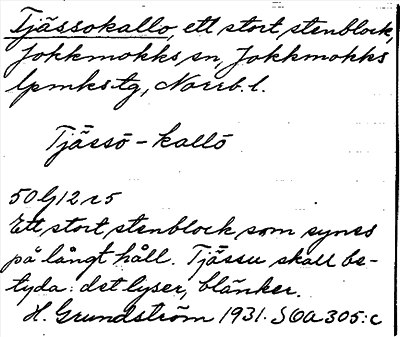 Tjåssokallo, ett stort stenblock,
Jokkmokks sn, Jokkmokks
lpmkstg, Norrb. l.
Tjåssō - kallō
50 G 12 r 5
Ett stort stenblock som synes
på långt håll. Tjåssu skall be-
tyda: det lyser, blänker.
H. Grundström 1931. SOA 305:c